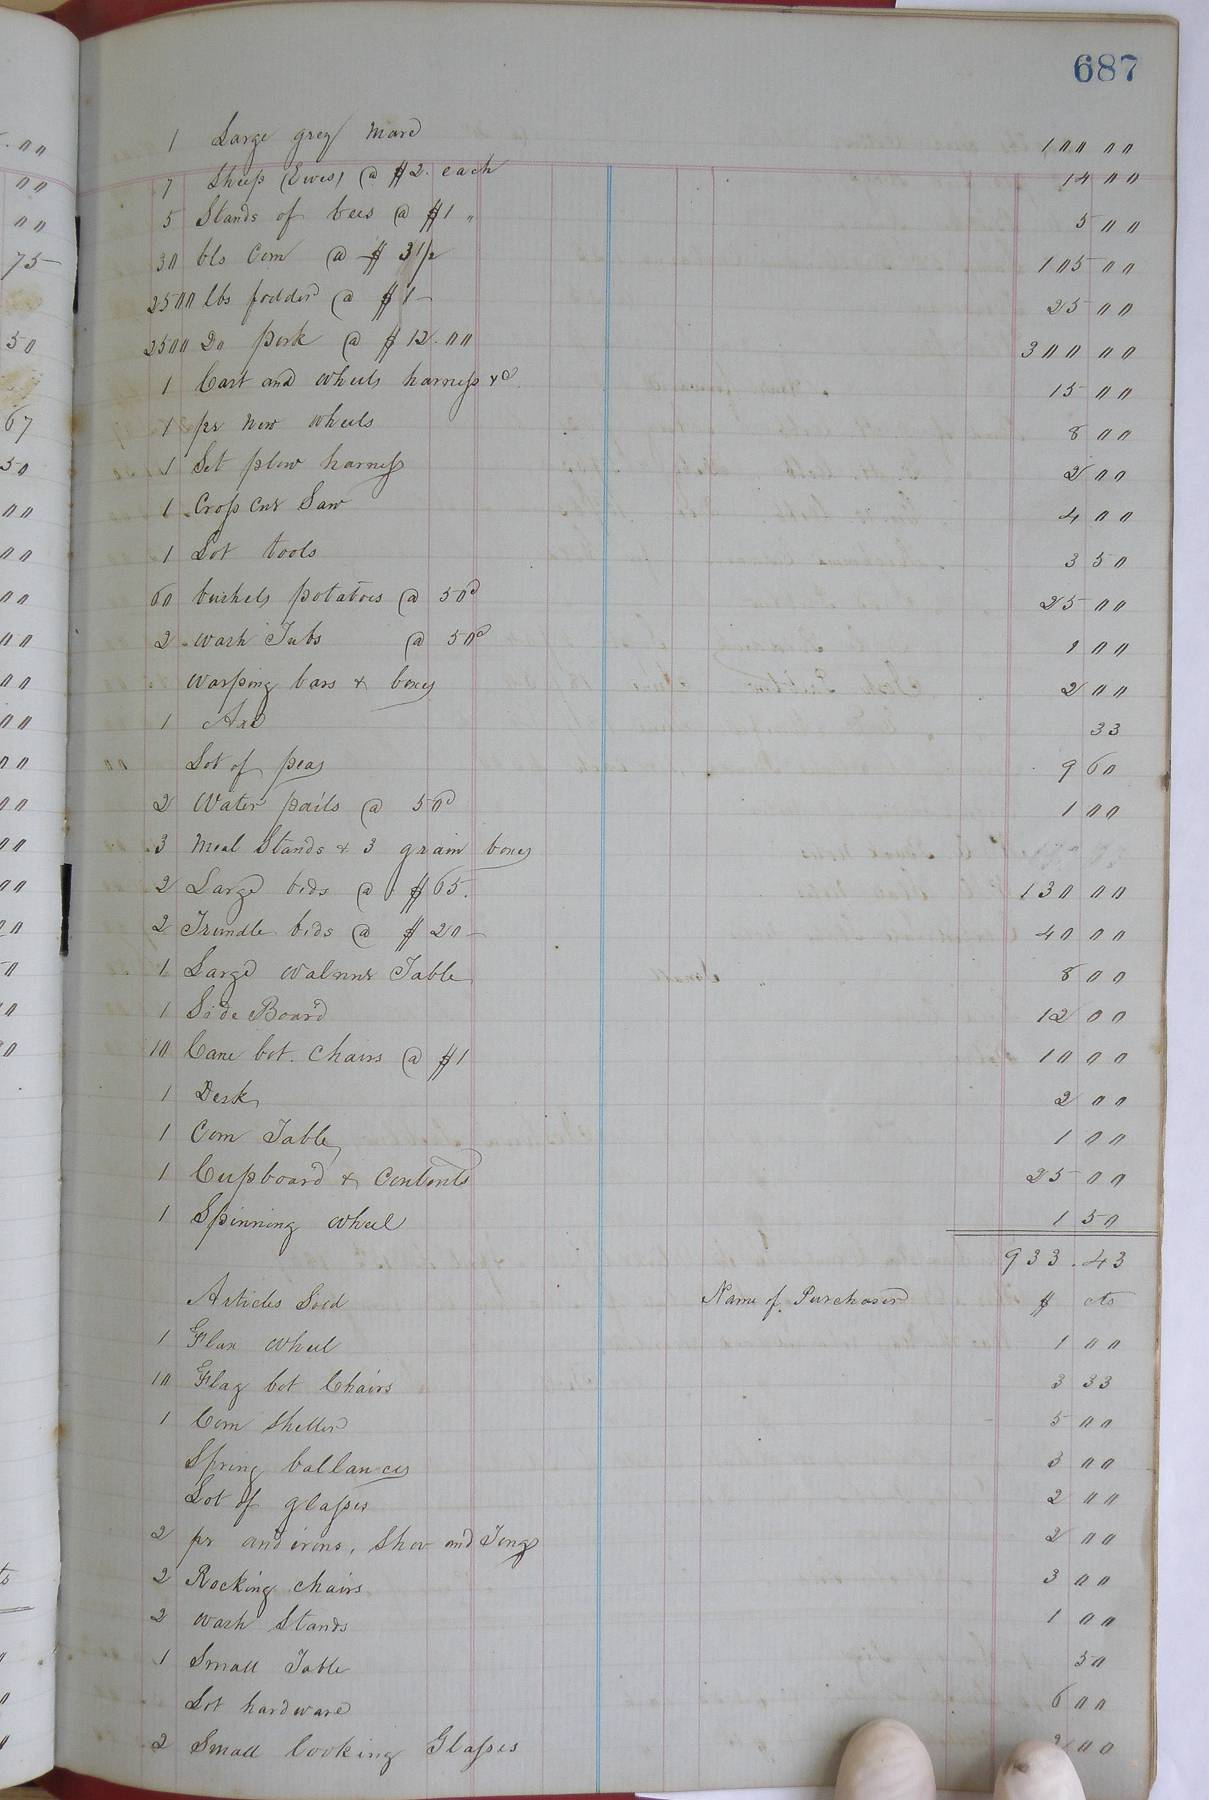 687
1 Large grey Mare 100 00
7 Sheep (Ewes) @ $2. each 14 00
5 Stands of bees @ $1 " 5 00
30 bls Corn @ $ 3 1/2 105 00
2500 lbs fodder @ $1– 25 00
2500 Do pork @ $12.00 300 00
1 Cart and wheels harness &c 15 00
1 pr New wheels 8 00
1 Set plow harness 2 00
1 Cross Cut Saw 4 00
1 Lot tools 3 50
60 bushels potatoes @ 50c 25 00
2 wash Tubs @ 50c 1 00
warping bars & boxes 2 00
1 Axe 33
Lot of peas 9 60
2 Water pails @ 50c 1 00
3 Meal Stands & 3 grain boxes
2 Large beds @ $65. 130 00
2 Trundle beds @ $20– 40 00
1 Large walnut Table 8 00
1 Side Board 12 00
10 Cane bot. Chairs @ $1 10 00
1 Desk 2 00
1 Com Table 1 00
1 Cupboard & Contents 25 00
1 Spinning wheel 1 50
933.43
Articles Sold Name of Purchaser $ cts
1 Flax wheel 1 00
10 Flag bot Chairs 3 33
1 Corn Sheller 5 00
Spring ballances 3 00
Lot of glasses 2 00
2 pr andirons, Shov and Tongs 2 00
2 Rocking chairs 3 00
2 wash Stands 1 00
1 Small Table 50
Lot hardware 6 00
2 Small looking Glasses 2 00